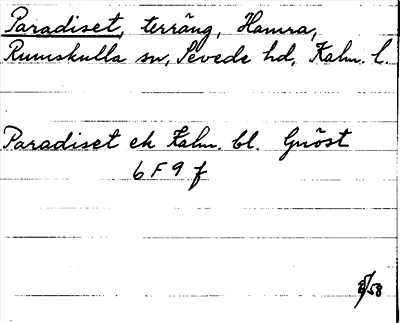 Paradiset, terräng, Hamra,
Rumskulla sn, Sevede hd, Kalm. l.
Paradiset ek Kalm. bl. Gnöst
6 F 9 f